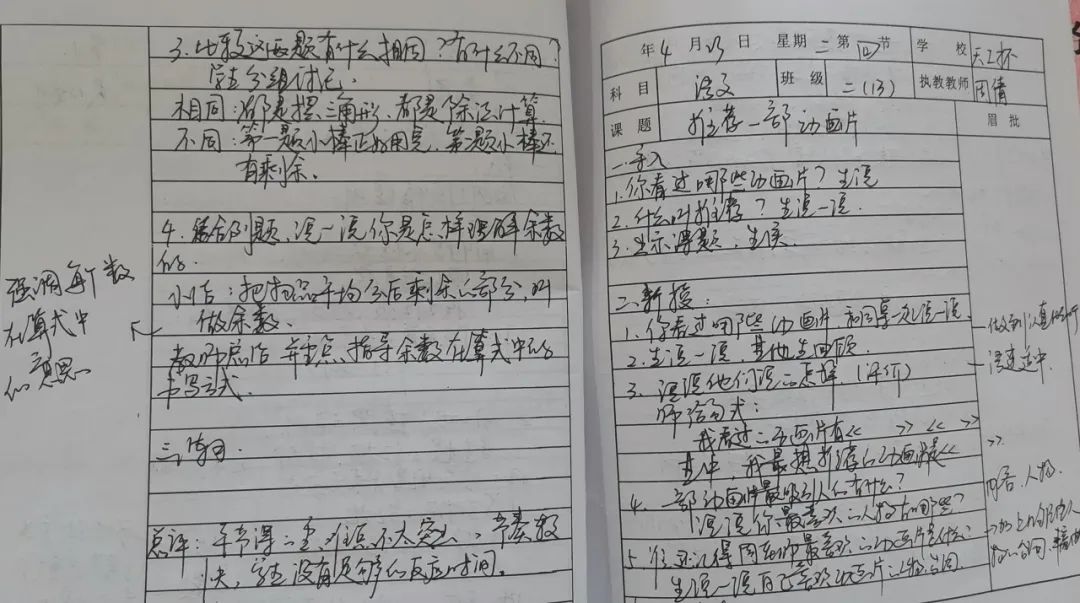 3. 比较这两题有什么相同？有什么不同？
学生分组讨论。
相同：都是摆三角形、都是除法计算.
不同：第一题小棒正好用完，第二题小棒还
有剩余。
4. 结合例题、说一说你是怎样理解余数
的。
小结：把物品平均分后剩余的部分，叫
做余数。
教师总结 并重点指导余数在算式中的
书写方式。
三、练习.
总评：本节课 不太 、节奏较
快，学生没有足够的反应时间。
强调每个数
在算式中
的意思
年 4 月 23 日 星期 二 第 四 节
学 校 天工杯
科 目 语文 班 级 二(13) 执教教师 周倩
课 题 推荐一部动画片 眉 批
一. 导入
1. 你看过哪些动画片？生说
2. 什么叫推荐？生说一说.
3. 出示课题，生读.
二、新授：
1. 你看过哪些动画片，和同桌 说一说
2. 生说一说，其他生回顾.
3. 说说他们说的怎样.（评价）
师给句式：
我看过的动画片有《 》《 》
其中，我最想推荐的动画片是《 》
4. 一部动画片最吸引人的有什么？
说说你最喜欢的人物有哪些？
5. 你还记得 你最喜欢的动画片是什么
生说一说自己喜欢的动画片的 台词
做到认真倾听
语速适中.
内容、人物.